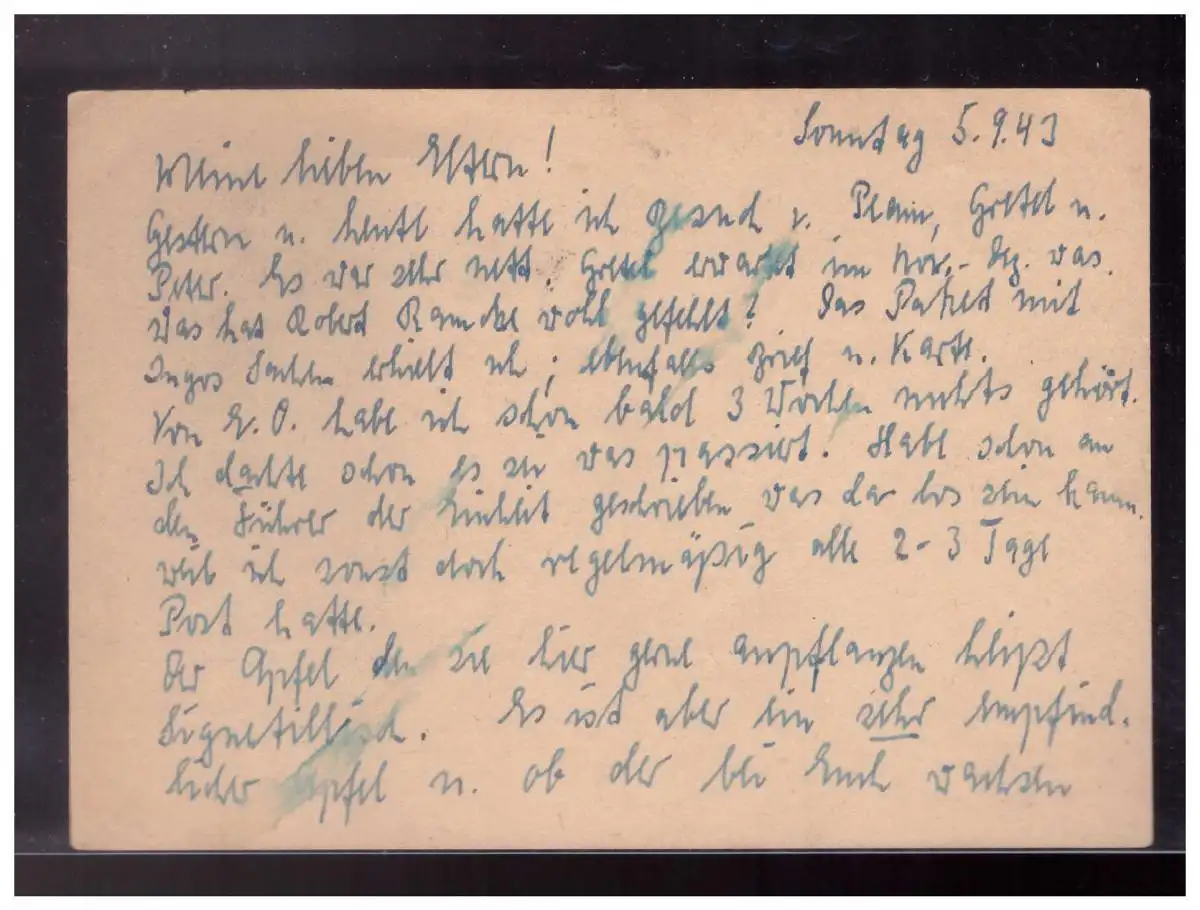 Sonntag 5.9.43
Meine lieben Eltern!
Gestern u. heute hatte ich Besuch v. Gretel u.
Peter. Es war sehr nett. Gretel erwartet im Nov.-Dez. was.
Was hat Robert wohl gefehlt? Das Paket mit
Ingos Sachen erhielt ich; ebenfalls Brief u. Karte.
Von E.O. habe ich schon bald 3 Wochen nichts gehört.
Ich dachte schon es sei was passiert. Habe schon an
den Führer der Einheit geschrieben was da los sein kann.
weil ich sonst doch regelmäßig alle 2-3 Tage
Post hatte.
Der Apfel den sie hier gerne anpflanzen heißt
Signetillisch. Es ist aber ein sehr empfind-
licher Apfel u. ob der bei Euch wachsen